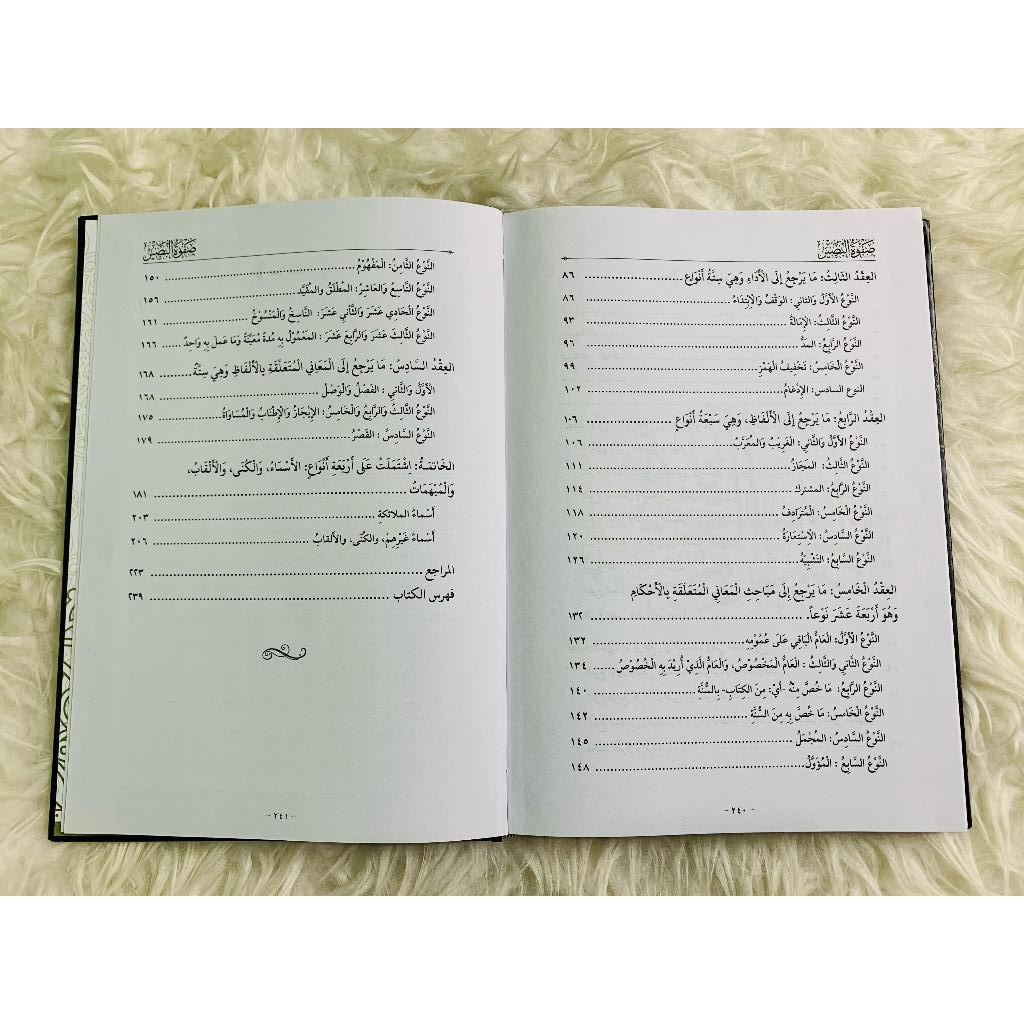 صفوة التفسير
العِقْدُ الثَّالِثُ: مَا يَرْجِعُ إلَى الْأَدَاءِ وَهِيَ سِتَّةُ أَنْوَاعٍ .......... ٨٦
النَّوْعُ الأَوَّلُ وَالثاني: الوَقْفُ وَالِابْتِدَاءُ .......... ٨٦
النَّوْعُ الثَّالِثُ: الإِمَالَةُ .......... ٩٣
النَّوْعُ الرَّابِعُ: المَدُّ .......... ٩٦
النَّوْعُ الْخَامِسُ: تَخْفِيفُ الْهَمْزِ .......... ٩٩
النوع السادس: الإِدْغَامُ .......... ١٠٢
العِقْدُ الرَّابِعُ: مَا يَرْجِعُ إِلَى الْأَلْفَاظِ، وَهِيَ سَبْعَةُ أَنْوَاعٍ .......... ١٠٦
النَّوْعُ الأَوَّلُ وَالثَّانِي: الغَرِيْبُ وَالمُعَرَّبُ .......... ١٠٦
النَّوْعُ الثَّالِثُ: المَجَازُ .......... ١١١
النَّوْعُ الرَّابِعُ: المشترك .......... ١١٤
النَّوْعُ الْخَامِسُ: الْمُتَرَادِفُ .......... ١١٨
النَّوْعُ السَّادِسُ: الاِسْتِعَارَةُ .......... ١٢٠
النَّوْعُ السَّابِعُ: التَّشْبِيْهُ .......... ١٢٦
العِقْدُ الْخَامِسُ: مَا يَرْجِعُ إِلَى مَبَاحِثِ الْمَعَانِي الْمُتَعَلِّقَةِ بِالْأَحْكَامِ
وَهُوَ أَرْبَعَةَ عَشَرَ نَوْعاً. .......... ١٣٢
النَّوْعُ الأَوَّلُ: الْعَامُّ الْبَاقِي عَلَى عُمُوْمِهِ .......... ١٣٢
النَّوْعُ الثَّانِي وَالثَّالِثُ : العَامُّ الْمَخْصُوْصُ، وَالعَامُّ الَّذِيْ أُرِيْدَ بِهِ الْخُصُوْصُ ...... ١٣٤
النَّوْعُ الرَّابِعُ: مَا خُصَّ مِنْهُ -أَيْ: مِنَ الكِتَابِ- بِالسُّنَّةِ .......... ١٤٠
النَّوْعُ الْخَامسُ: مَا خُصَّ بِهِ مِنَ السُّنَّةِ .......... ١٤٢
النَّوْعُ السَّادِسُ: المُجْمَلُ .......... ١٤٥
النَّوْعُ السَّابِعُ : الْمُؤَوَّلُ .......... ١٤٨
- ٢٤٠ -
صفوة التفسير
النَّوْعُ الثَّامِنُ: الْمَفْهُوْمُ .......... ١٥٠
النَّوْعُ التَّاسِعُ وَالعَاشِرُ: المُطْلَقُ والمُقَيَّد .......... ١٥٦
النَّوْعُ الْحَادِي عَشَرَ وَالثَّانِي عَشَرَ: النَّاسِخُ وَالْمَنْسُوْخُ .......... ١٦١
النَّوْعُ الثَّالِثَ عَشَرَ وَالرَّابِعَ عَشَرَ : المَعْمُوْلُ بِهِ مُدةً مُعَيَّنَةً وَمَا عَمِلَ بِهِ وَاحِدٌ ..... ١٦٦
العِقْدُ السَّادِسُ: مَا يَرْجِعُ إِلَى الْمَعَانِي الْمُتَعَلِّقَةِ بِالْأَلْفَاظِ وَهِيَ سِتَّةٌ ......... ١٦٨
الأَوَّلُ وَالثَّانِي : الفَصْلُ وَالْوَصْلُ .......... ١٦٨
النَّوْعُ الثَّالِثُ وَالرَّابِعُ وَالْخَامِسُ: الإِيْجَازُ وَالإِطْنَابُ وَالْمُسَاوَاةُ .......... ١٧٥
النَّوْعُ السَّادسُ : القَصْرُ .......... ١٧٩
الْخَاتمَةُ: اِشْتَمَلَتْ عَلَى أَرْبَعَةِ أَنْوَاعٍ: الأَسْمَاءُ، وَالْكُنَى، وَالْأَلْقَابُ،
وَالْمُبْهَمَاتُ .......... ١٨١
أَسْماءُ الملائكةِ .......... ٢٠٣
أَسْماءُ غَيْرِهِمْ، والكُنَى، والألقابُ .......... ٢٠٦
المراجع .......... ٢٢٣
فهرس الكتاب .......... ٢٣٩
- ٢٤١ -